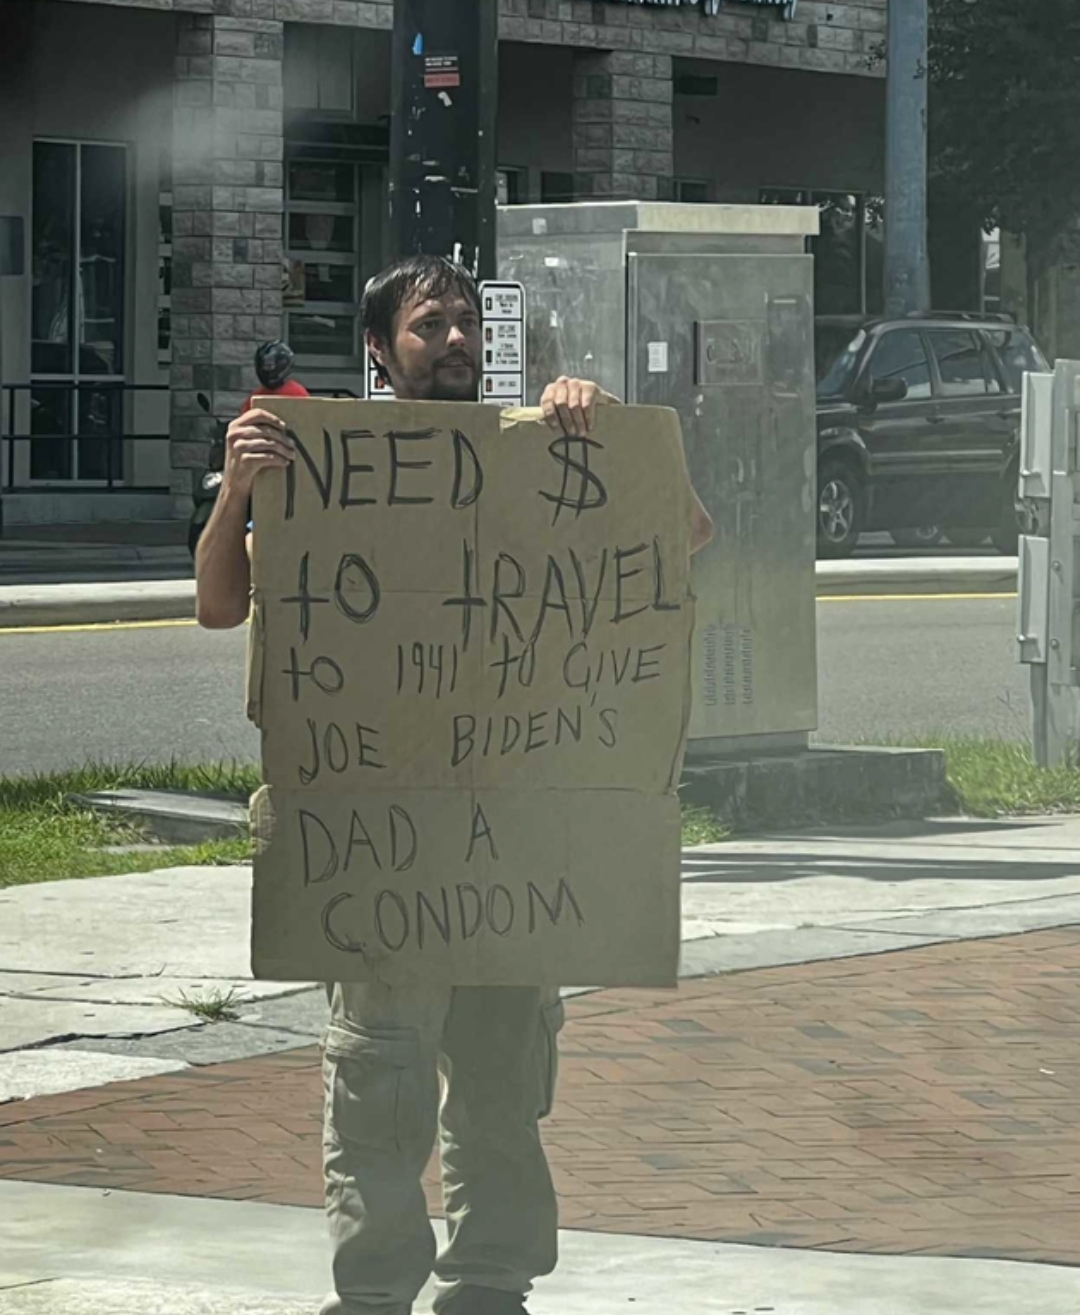 NEED $
to tRAVEL
to 1941 to GIVE
JOE BIDEN'S
DAD A
CONDOM